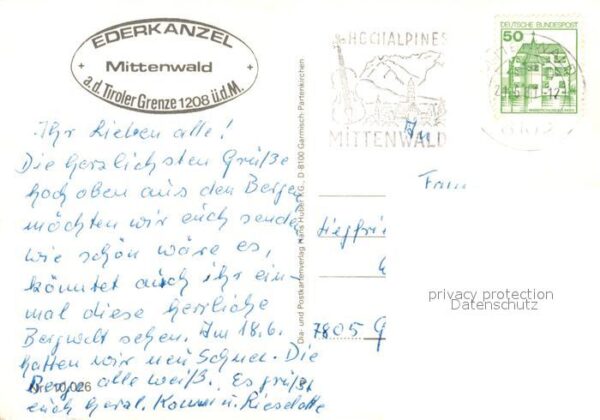 EDERKANZEL
Mittenwald
a.d. Tiroler Grenze 1208 ü.d.M.
HOCHALPINES
MITTENWALD
DEUTSCHE BUNDESPOST
50
Ihr lieben alle!
Die herzlichsten Grüße
hoch oben aus den Bergen
möchten wir euch senden
wie schön wäre es,
könntet auch ihr ein-
mal diese herrliche
Bergwelt sehen. Am 18.6.
hatten wir neu Schnee. Die
Berge alle weiß. Es grüßt
euch herzl.
Nr. 10 026
Dia- und Postkartenverlag Hans Huber KG., D 8100 Garmisch-Partenkirchen
An
Fam
Siegfri
7805 G
privacy protection
Datenschutz